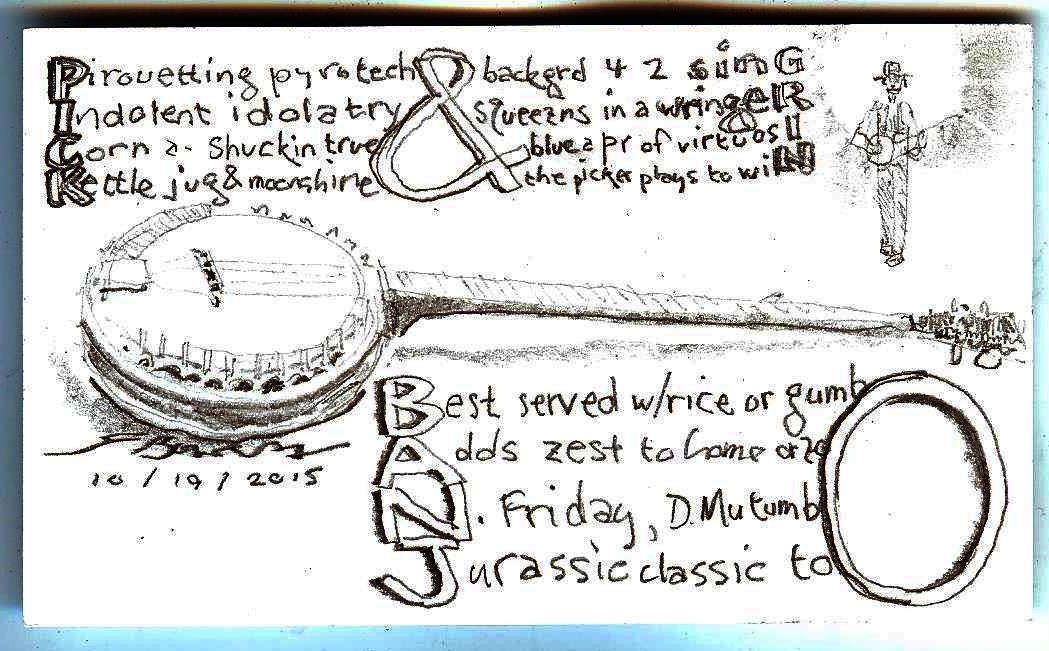 Pirouetting pyrotech & backgrd 4 2 sinG
Indolent idolatry squeezns in a wringeR
Corn a- shuckin true blue a pr of virtuosI
Kettle jug & moonshine the picker plays to wiN
Best served w/rice or gumbO
Adds zest to home or zoO
N. Friday, D. MutumbO
Jurassic classic toO
10/19/2015